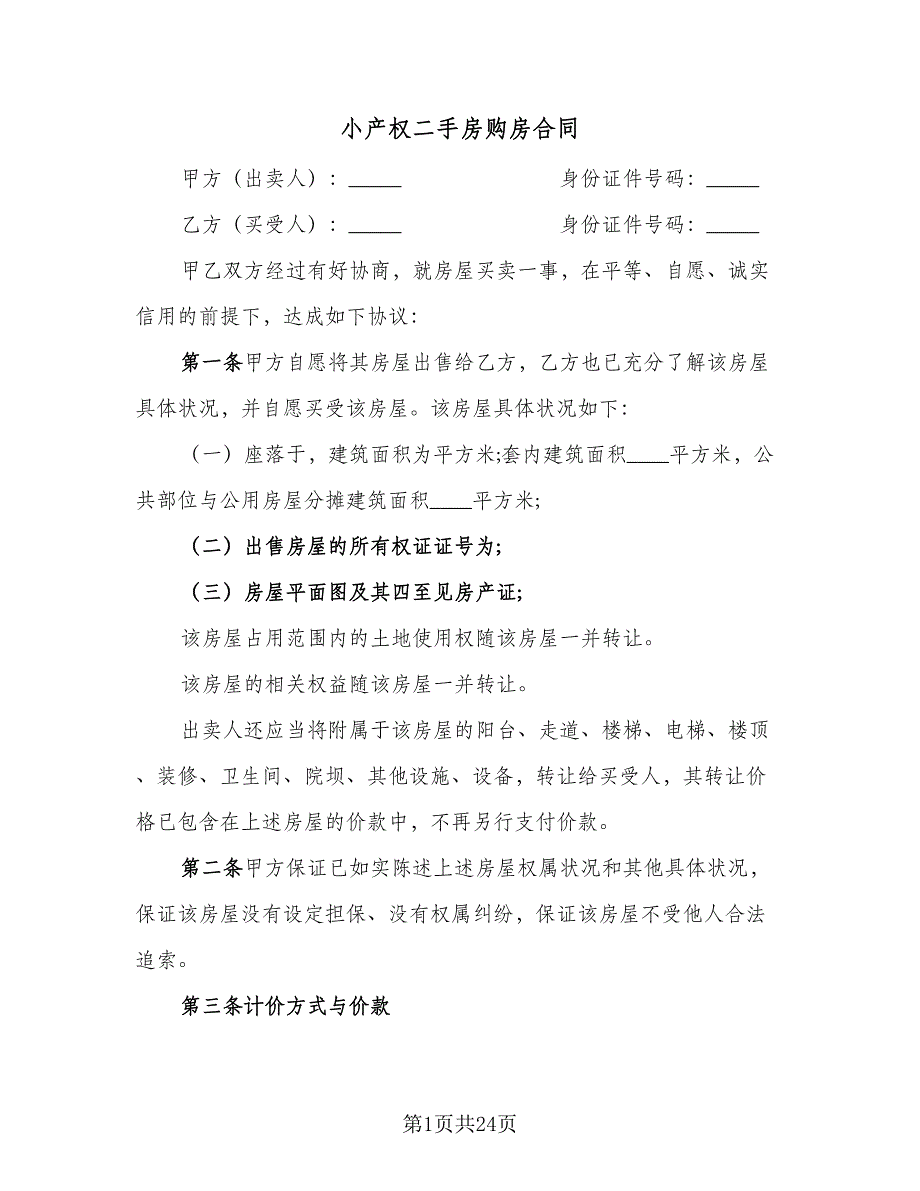 小产权二手房购房合同
甲方（出卖人）：_____ 身份证件号码：_____
乙方（买受人）：_____ 身份证件号码：_____
甲乙双方经过有好协商，就房屋买卖一事，在平等、自愿、诚实
信用的前提下，达成如下协议：
第一条甲方自愿将其房屋出售给乙方，乙方也已充分了解该房屋
具体状况，并自愿买受该房屋。该房屋具体状况如下：
（一）座落于，建筑面积为平方米;套内建筑面积____平方米，公
共部位与公用房屋分摊建筑面积____平方米;
（二）出售房屋的所有权证证号为;
（三）房屋平面图及其四至见房产证;
该房屋占用范围内的土地使用权随该房屋一并转让。
该房屋的相关权益随该房屋一并转让。
出卖人还应当将附属于该房屋的阳台、走道、楼梯、电梯、楼顶
、装修、卫生间、院坝、其他设施、设备，转让给买受人，其转让价
格已包含在上述房屋的价款中，不再另行支付价款。
第二条甲方保证已如实陈述上述房屋权属状况和其他具体状况，
保证该房屋没有设定担保、没有权属纠纷，保证该房屋不受他人合法
追索。
第三条计价方式与价款
第1页共24页